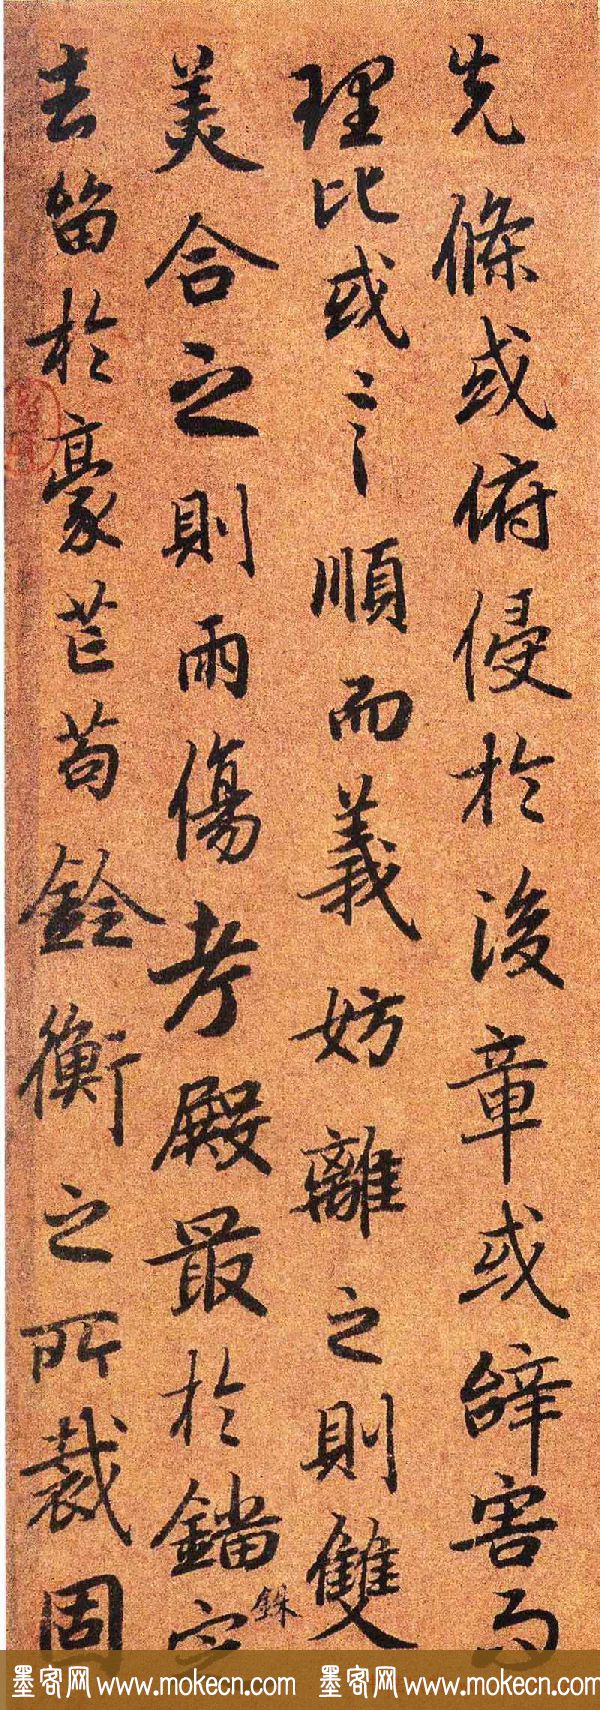 先條或俯侵於後章或辭害而
理比或言順而義妨離之則雙
美合之則兩傷考殿最於錙銖定
去留於豪芒苟銓衡之所裁固
墨客网 www.mokecn.com 墨客网 www.mokecn.com